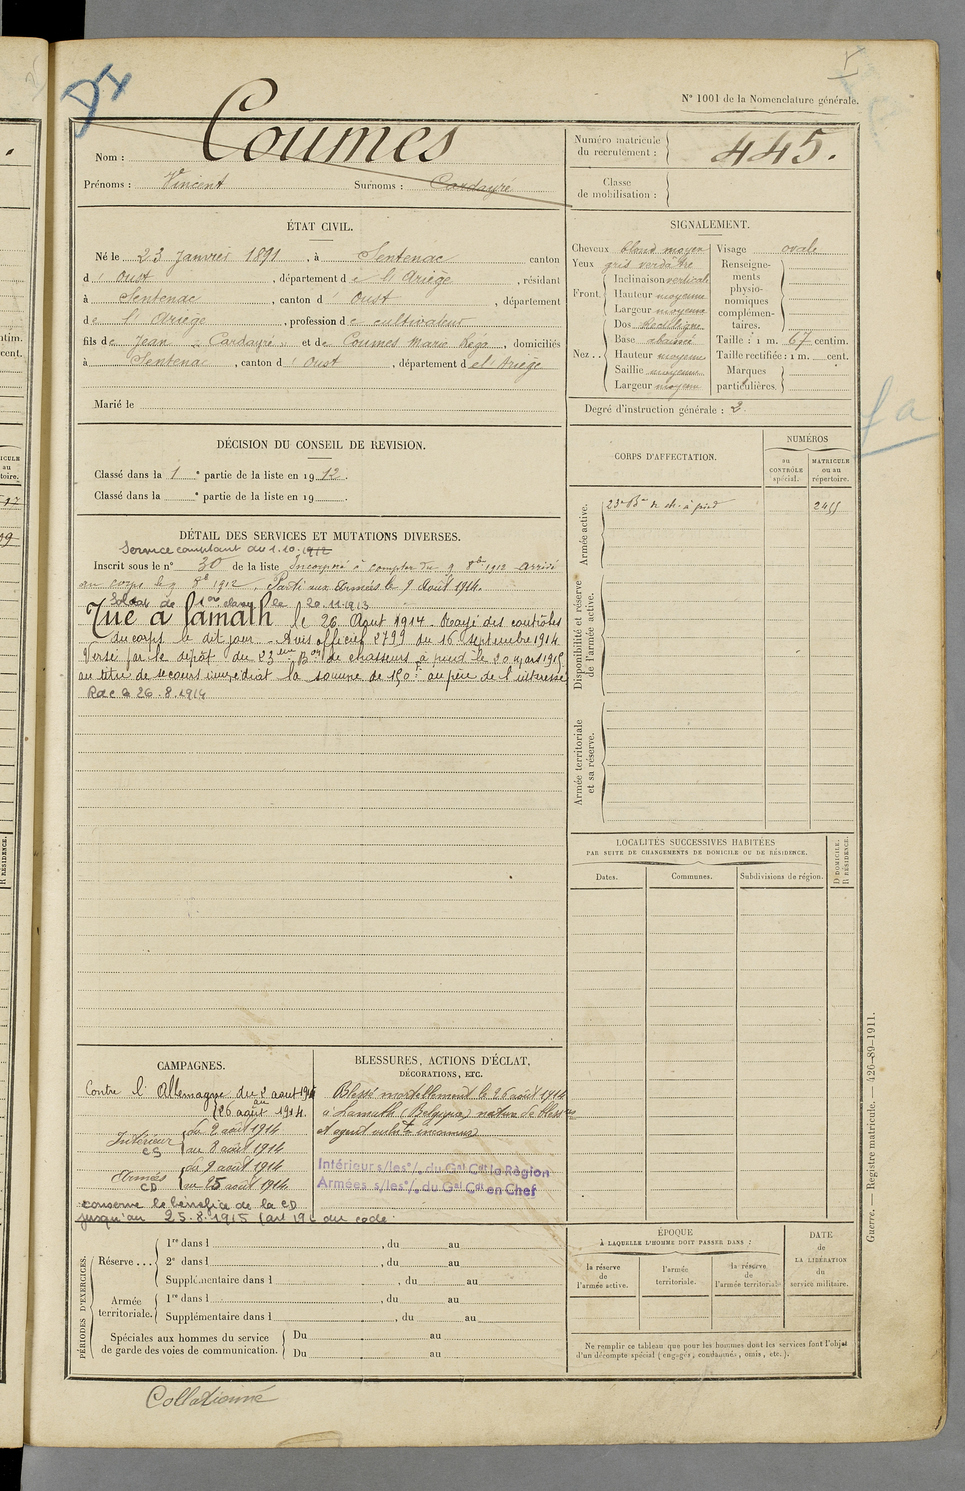 N° 1001 de la Nomenclature générale.
Nom : Coumes
Prénoms : Vincent Surnoms : Cardayré
Numéro matricule du recrutement : 445.
Classe de mobilisation :
ÉTAT CIVIL.
Né le 23 Janvier 1891, à Sentenac canton
d' Oust, département de l'Ariège, résidant
à Sentenac, canton d' Oust, département
de l'Ariège, profession de cultivateur
fils de Jean "Cardayré" et de Coumes Marie, domiciliés
à Sentenac, canton d' Oust, département de l'Ariège
Marié le
SIGNALEMENT.
Cheveux blond moyen
Yeux gris verdâtre
Front. Inclinaison verticale
Hauteur moyenne
Largeur moyenne
Nez. Dos Rectiligne
Base abaissée
Hauteur moyenne
Saillie moyenne
Largeur moyenne
Visage ovale
Renseignements physionomiques complémentaires.
Taille : 1 m. 67 centim.
Taille rectifiée : 1 m. cent.
Marques particulières.
Degré d'instruction générale : 2.
DÉCISION DU CONSEIL DE REVISION.
Classé dans la 1e partie de la liste en 1912.
Classé dans la e partie de la liste en 19
CORPS D'AFFECTATION.
NUMÉROS
au CONTRÔLE spécial.
MATRICULE ou au répertoire.
Armée active.
23e Bon de ch. à pied 2455
Disponibilité et réserve de l'armée active.
Armée territoriale et sa réserve.
DÉTAIL DES SERVICES ET MUTATIONS DIVERSES.
Service comptant du 1.10.1912
Inscrit sous le n° 30 de la liste Incorporé à compter du 9 8bre 1912 Arrivé
au corps le 9 8bre 1912. Parti aux Armées le 9 Août 1914.
Soldat de 1ère classe le 20.11.1913
Tué à Lamath le 26 Aout 1914. Rayé des contrôles
du corps le dit jour - Avis officiel 2799 du 16 septembre 1914
Versé par le dépôt du 23eme Bon de chasseurs à pied le 20 mars 1915
au titre de secours immédiat la somme de 150f au père de l'intéressé
Rdc le 26.8.1914
LOCALITÉS SUCCESSIVES HABITÉES
PAR SUITE DE CHANGEMENTS DE DOMICILE OU DE RÉSIDENCE.
Dates. Communes. Subdivisions de région. D DOMICILE. R RÉSIDENCE.
CAMPAGNES.
Contre l'Allemagne du 2 aout 1914
au 26 août 1914.
Intérieur CS du 2 août 1914
au 8 août 1914
Armées CD du 9 août 1914
au 25 août 1914
conserve le bénéfice de la CD
jusqu'au 25.8.1915 (art 19 du code.
BLESSURES, ACTIONS D'ÉCLAT,
DÉCORATIONS, ETC.
Blessé mortellement le 26 août 1914
à Lamath (Belgique) nature de blessure
et agent inconnus
Intérieur s/les °/. du Gal Cdt la Région
Armées s/les °/. du Gal Cdt en Chef
PÉRIODES D'EXERCICES.
Réserve ... 1re dans l , du au
2e dans l , du au
Supplémentaire dans l , du au
Armée territoriale. 1re dans l , du au
Supplémentaire dans l , du au
Spéciales aux hommes du service de garde des voies de communication. Du au
Du au
ÉPOQUE
À LAQUELLE L'HOMME DOIT PASSER DANS :
la réserve de l'armée active.
l'armée territoriale.
la réserve de l'armée territoriale.
DATE de LA LIBÉRATION du service militaire.
Ne remplir ce tableau que pour les hommes dont les services font l'objet
d'un décompte spécial (engagés, condamnés, omis, etc.).
Guerre. — Registre matricule. — 426-89-1911.
Collationné
fa